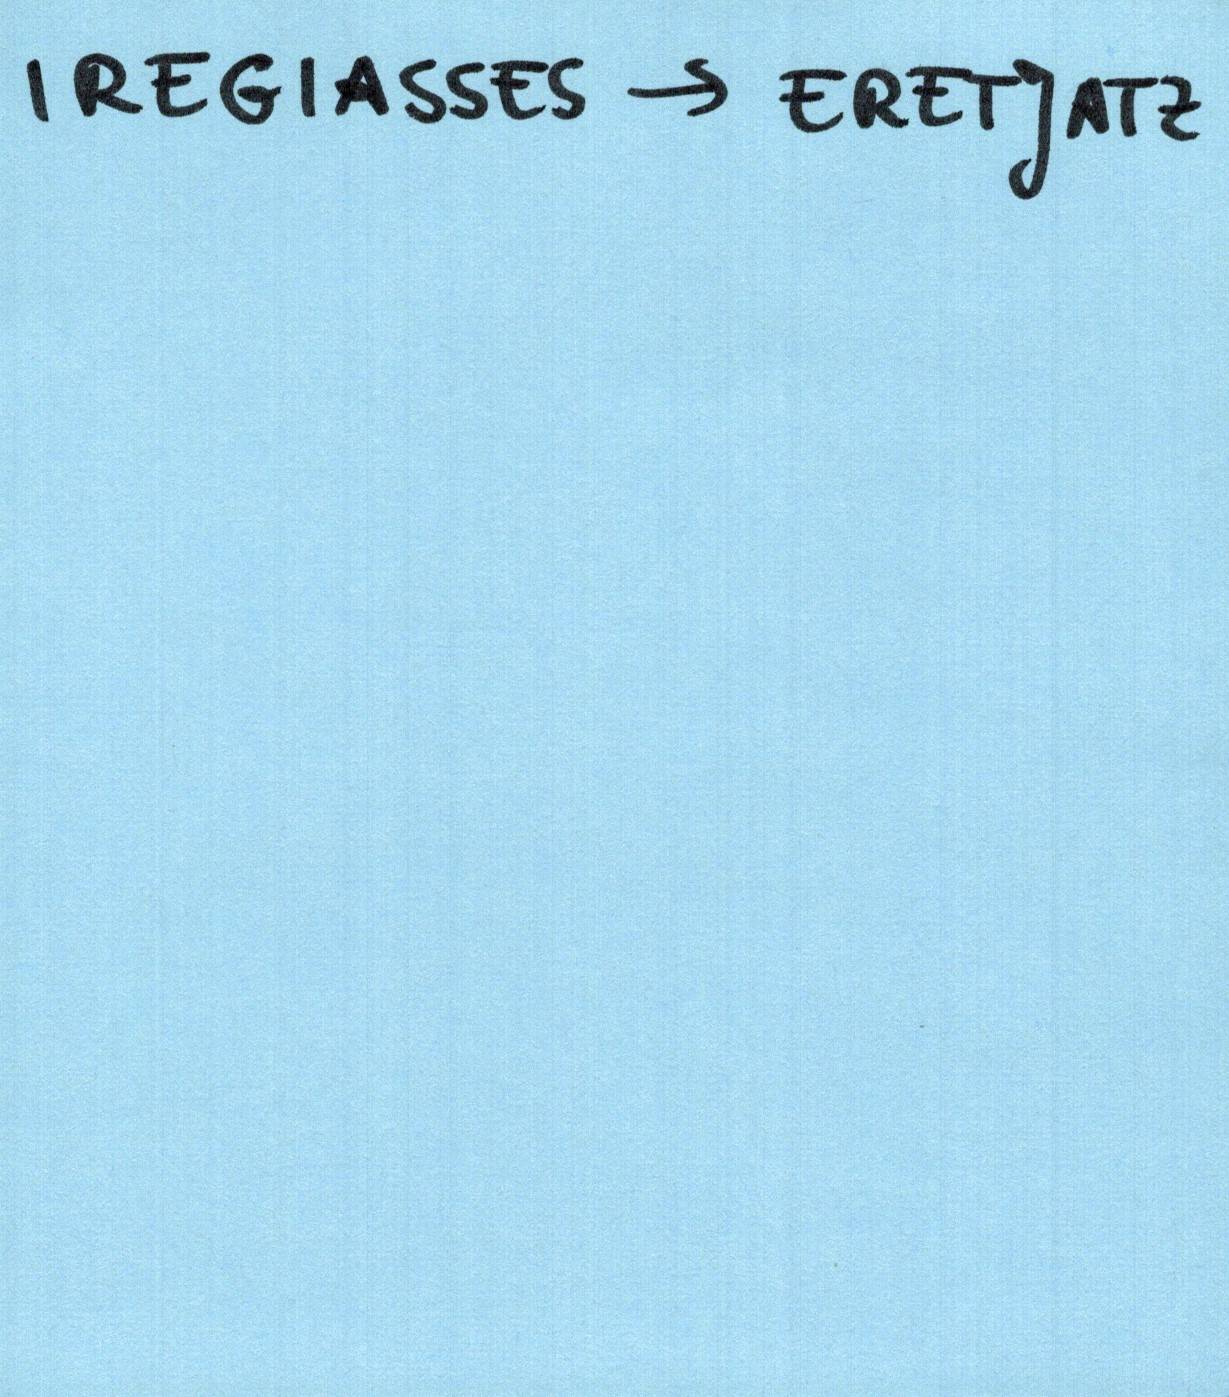 IREGIASSES → ERETJATZ